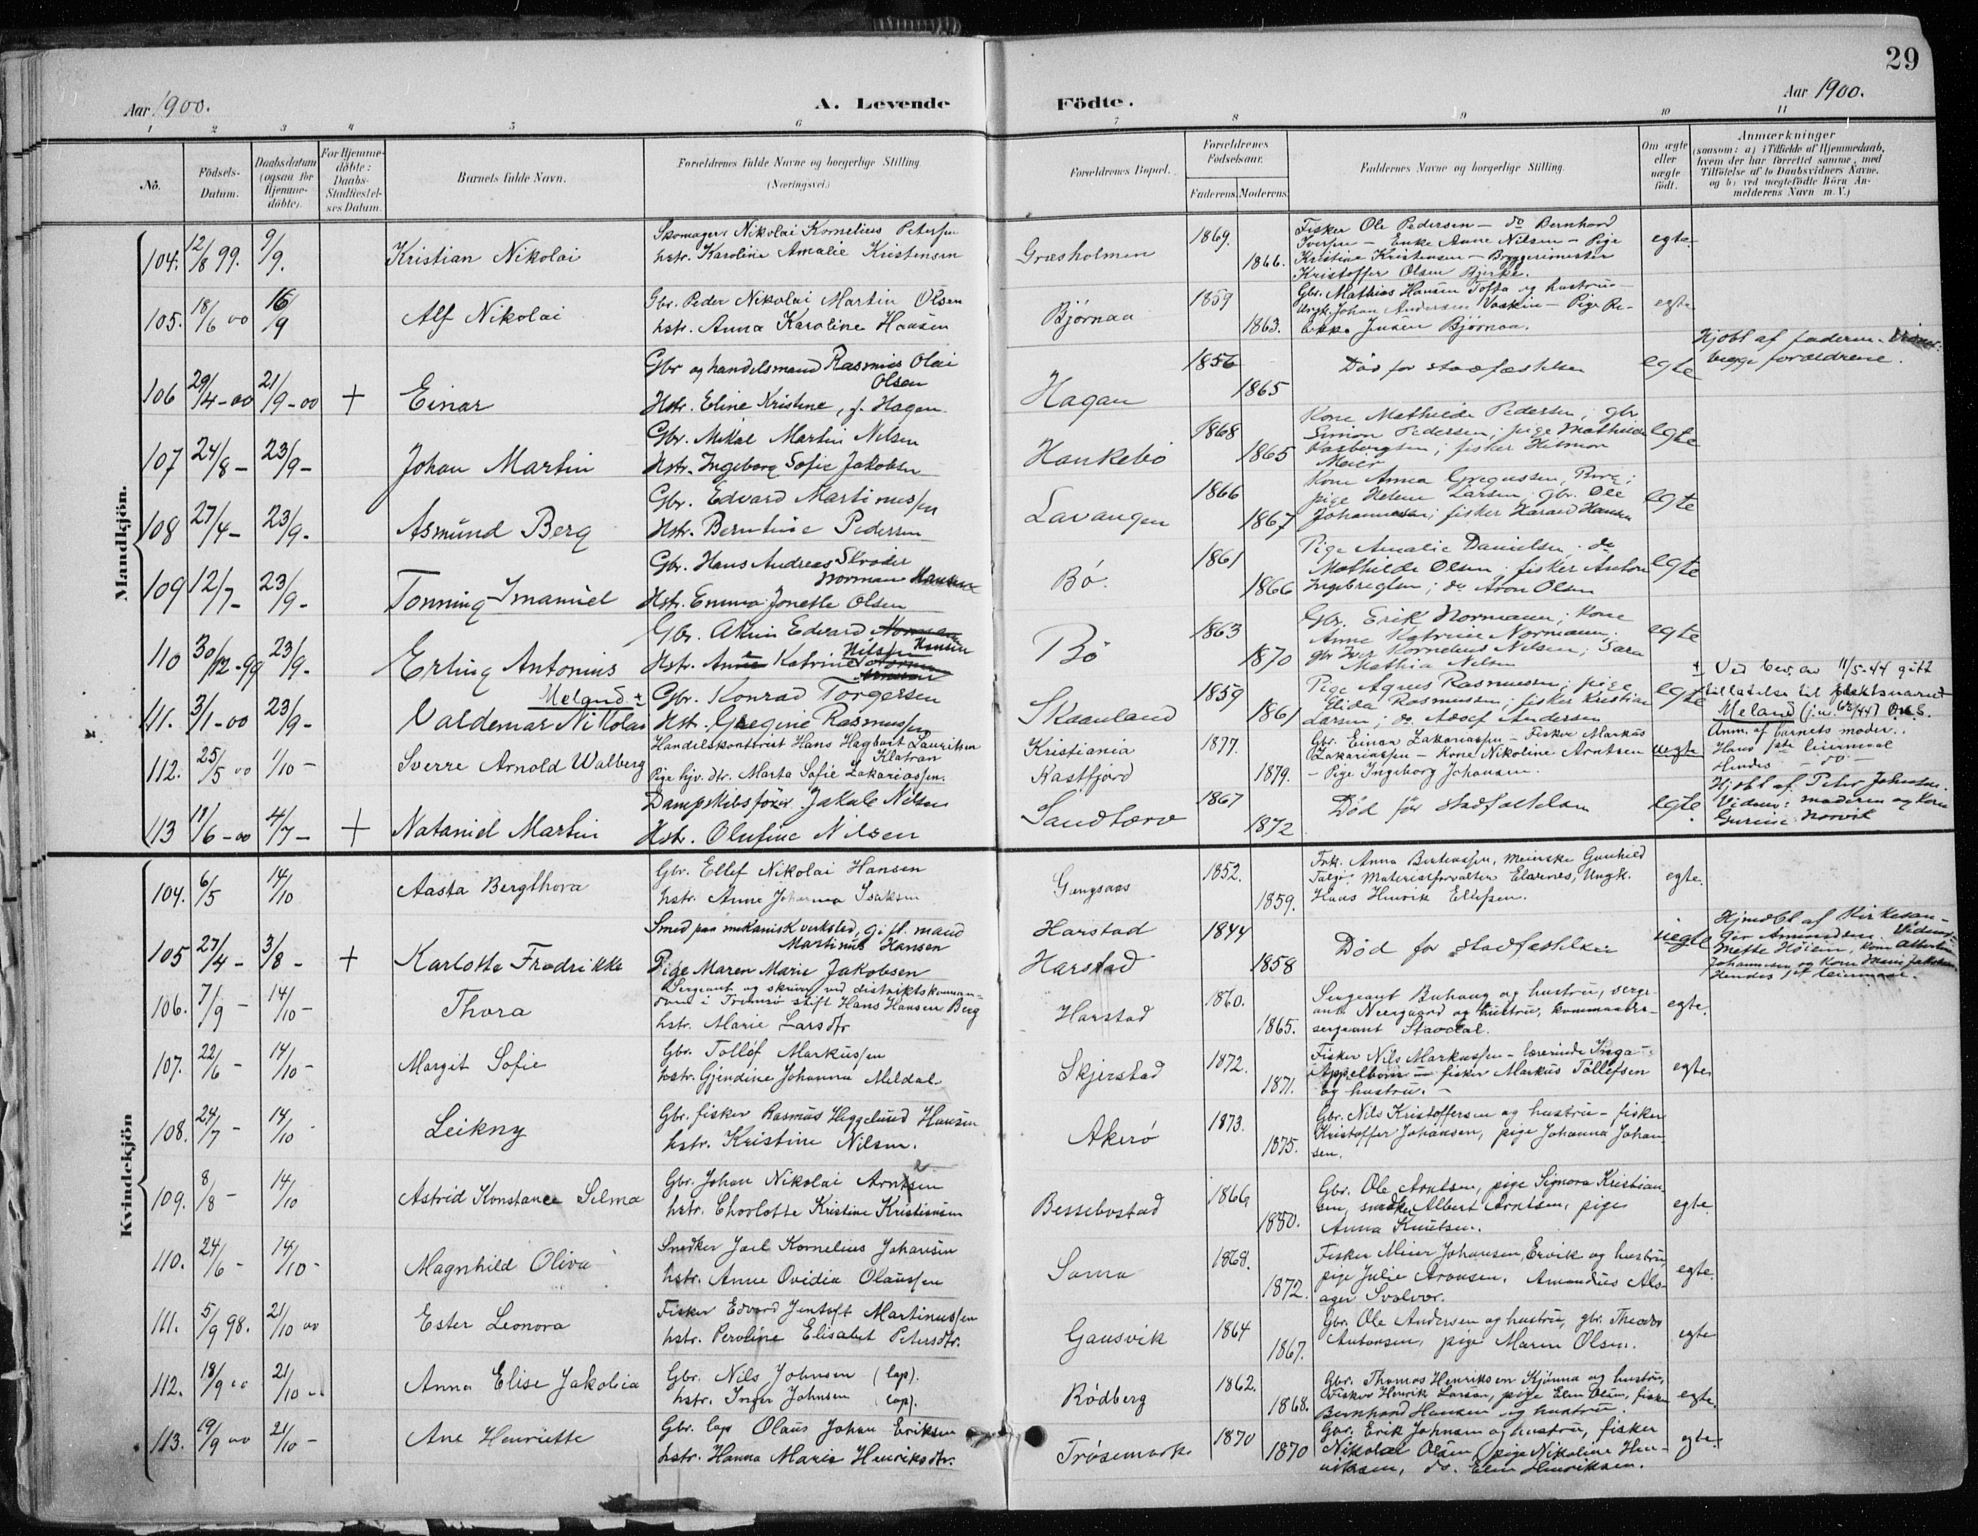 29
Aar 1900.
A. Levende Födte.
Aar 1900.
1 2 3 4 5 6 7 8 9 10 11
No.
Födsels-Datum.
Daabsdatum (ogsaa for Hjemmedöbte).
For Hjemmedöbte: Daabs-Stadfæstelses Datum.
Barnets fulde Navn.
Forældrenes fulde Navne og borgerlige Stilling. (Næringsvei.)
Forældrenes Bopæl.
Forældrenes Födselsaar.
Faderens. Moderens.
Faddernes Navne og borgerlige Stilling.
Om ægte eller uægte födt.
Anmærkninger
(saasom: a) i Tilfælde af Hjemmedaab, hvem der har forrettet samme, med Tilföielse af to Daabsvidners Navne, og b) ved uægtefödte Börn Anmelderens Navn m. V.)
Mandkjön.
104. 12/8 99. 9/9. Kristian Nikolai
Skomager Nikolai Kornelius Petersen
hstr. Karoline Amalie Kristensen
Græsholmen 1869. 1866.
Fisker Ole Pedersen – do Bernhard
Iversen – Enke Anne Nilsen – Pige
Kristine Kristensen – Bryggerimester
Kristoffer Olsen Bjerke.
egte
105. 18/6 00 16/9 Alf Nikolai
Gbr. Peder Nikolai Martin Olsen
hstr. Anna Karoline Hansen
Bjørnaa 1859 1863.
Gbr. Mathias Hansen Tofta og hustru –
Ungk. Johan Andersen – Pige Re-
bekka Jensen Bjørnaa.
egte
106 29/4-00 21/9-00 + Einar
Gbr og handelsmand Rasmus Olai
Olsen
Hstr. Eline Kristine, f. Hagen
Hagan 1856 1865
Død før stadfæstelsen
egte
Hjdbt af faderen.
begge forældrene.
107 24/8 - 23/9 - Johan Martin
Gbr. Mikal Martin Nilsen
Hstr. Ingeborg Sofie Jakobsen
Haukebø 1868 1865
Kone Mathilde Pedersen, gbr
Simon Pedersen; pige Mathilde
fisker Hilmar
Meier
egte
108 27/4 - 23/9 - Asmund Berg
Gbr. Edvard Martinussen
Hstr. Berntine Pedersen
Lavangen 1866 1867
Kone Anna Gregussen,
pige Helene Larsen; gbr. Ole
Johannesen; fisker Harald Hansen
egte
109 12/7 - 23/9 - Tonning Imanuel
Gbr. Hans Andreas Skroder
Norman Hansen
Hstr. Emma Jonette Olsen
Bø. 1861 1866
Pige Amalie Danielsen; do
Mathilde Olsen; fisker Anton
Ingebrigtsen; do Aron Olsen
egte
110 30/12-99 23/9 - Erling Antonius
Gbr. Edvard Norman
Nilsen Hansen
Hstr. Anne Katrine
Bø 1863 1870
Gbr. Erik Normann; kone
Anne Katrine Normann;
gbr Kornelius Nilsen; Sara
Mathia Nelsen
egte
111. 3/1-00 23/9 - Valdemar Nikolai
Meland +
Gbr. Konrad Torgersen
Hst. Gregine Rasmussen
Skaanland 1859 1861
Pige Agnes Rasmussen; pige
Elida Rasmussen; fisker Kristian
Larsen; do. Adolf Andersen
egte
+ Ved bev. av 11/5-44 gitt
tillatelse til slektsnavnet
Meland (j.nr. 62/44)
112. 25/5 00 1/10 - Sverre Arnold Walberg
Handelskontorist Hans Hagbart Lauritsen
Klatran
Pige hjv. dtr. Marta Sofie Zakariassen.
Kristiania
Kastfjord 1877. 1879.
Gbr. Einar Zakariassen – Fisker Markus
Zakariassen – Kone Nikoline Arntsen
– Pige Ingeborg Johansen.
uegte
Anm. af barnets moder.
Hans 1ste leiermaal
Hendes – do –
113 11/6-00 4/7 - + Nataniel Martin
Dampskibsfører Jakob Nilsen
Hstr. Olufine Nilsen
Sandtorv 1867 1872
Død før stadfæstelsen
egte.
Hjdbt af Peter Johnsen.
Vidner: moderen og kone
Gurine Norvik
Kvindekjön
104. 6/5 14/10 Aasta Bergthora
Gbr. Ellef Nikolai Hansen
hstr. Anne Johanna Isaksen
Gangsaas 1852. 1859.
Frk. Anna Berteussen, Meierske Gunhild
Materialforvalter Elvenes, Ungk.
Hans Henrik Ellefsen.
egte.
105 27/4 - 3/8 - + Karlotte Fredrikke
Smed paa mekanisk verksted, gift mand
Martinus Hansen
Pige Maren Marie Jakobsen
Harstad
Harstad 1844 1858
Død før stadfæstelsen
uegte
Hjmdbt af Kirkesan-
ger Amundsen. Vidner:
Mette Høien, kone
Johannesen og kone Marie Jakobsen
Hendes 1st leiermaal.
106. 7/9 - 14/10 - Thora
Sergeant og skriver ved distriktskomman-
doen i Tromsø stift Hans Hansen Berg
hstr. Marie Larsdtr
Harstad 1860. 1865.
Sergeant Buhaug og hustru, serge-
ant Neergaard og hustru, kommander-
sergeant Stavdal.
egte.
107. 22/6 - 14/10 - Margit Sofie
Gbr. Tollöf Markussen
hstr. Gjendine Johanna Meldal
Skjerstad 1872. 1871.
Fisker Nils Markussen – lærerinde Inga
Appelbom – fisker Markus Tollefsen
og hustru. –
egte
108. 24/7 - 14/10 Leikny
Gbr. fisker Rasmus Haggelund Hansen
hstr. Kristine Nilsen.
Akerø 1873. 1875.
Gbr. Nils Kristoffersen og hustru – fisker
Kristoffer Johansen, pige Johanna Johan-
sen.
109. 8/8 - 14/10 Astrid Konstance Selma
Gbr. Johan Nikolai Arntsen
hstr. Charlotte Kristine Kristiansen
Bessebostad 1866 1880.
Gbr. Ole Arntsen, pige Signora Kristian-
sen, snedker Albert Arntsen, pige
Anna Knutsen.
egte.
110. 24/6 - 14/10 - Magnhild Oliva
Snedker Jarl Kornelius Johansen
hstr. Anne Ovidia Olaussen
Sama 1868. 1872.
Fisker Meier Johansen, Ervik og hustru,
pige Julie Aronsen. Amandus Als-
ager Svolvær.
egte.
111. 5/9 98. 21/10 00 Ester Leonora
Fisker Edvard Jentoft Martinussen
hstr. Peroline Elisabet Petersdtr.
Gausvik 1864 1867.
Gbr. Ole Andersen og hustru, gbr. Theodor
Antonsen, pige Maren Olsen.
egte
112. 18/9 00 21/10 00 Anna Elise Jakobia
Gbr. Nils Johnsen (lap).
hstr. Inger Johnsen (lap).
Rödberg 1862. 1868.
Gbr. Thomas Henriksen Kjønna og hustru,
Fisker Henrik Larsen, pige Elen Olsen, fisker
Bernhard Hansen og hustru.
egte.
113. 19/9 00 21/10 - Ane Henriette
Gbr. lap Olaus Johan Eriksen
hstr. Hanna Marie Henriksdtr.
Trøsemark 1870 1870
Gbr. Erik Johnsen og hustru, fisker
Nikolai Olsen, pige Nikoline Hen-
riksen, do. Elen Henriksen.
egte.